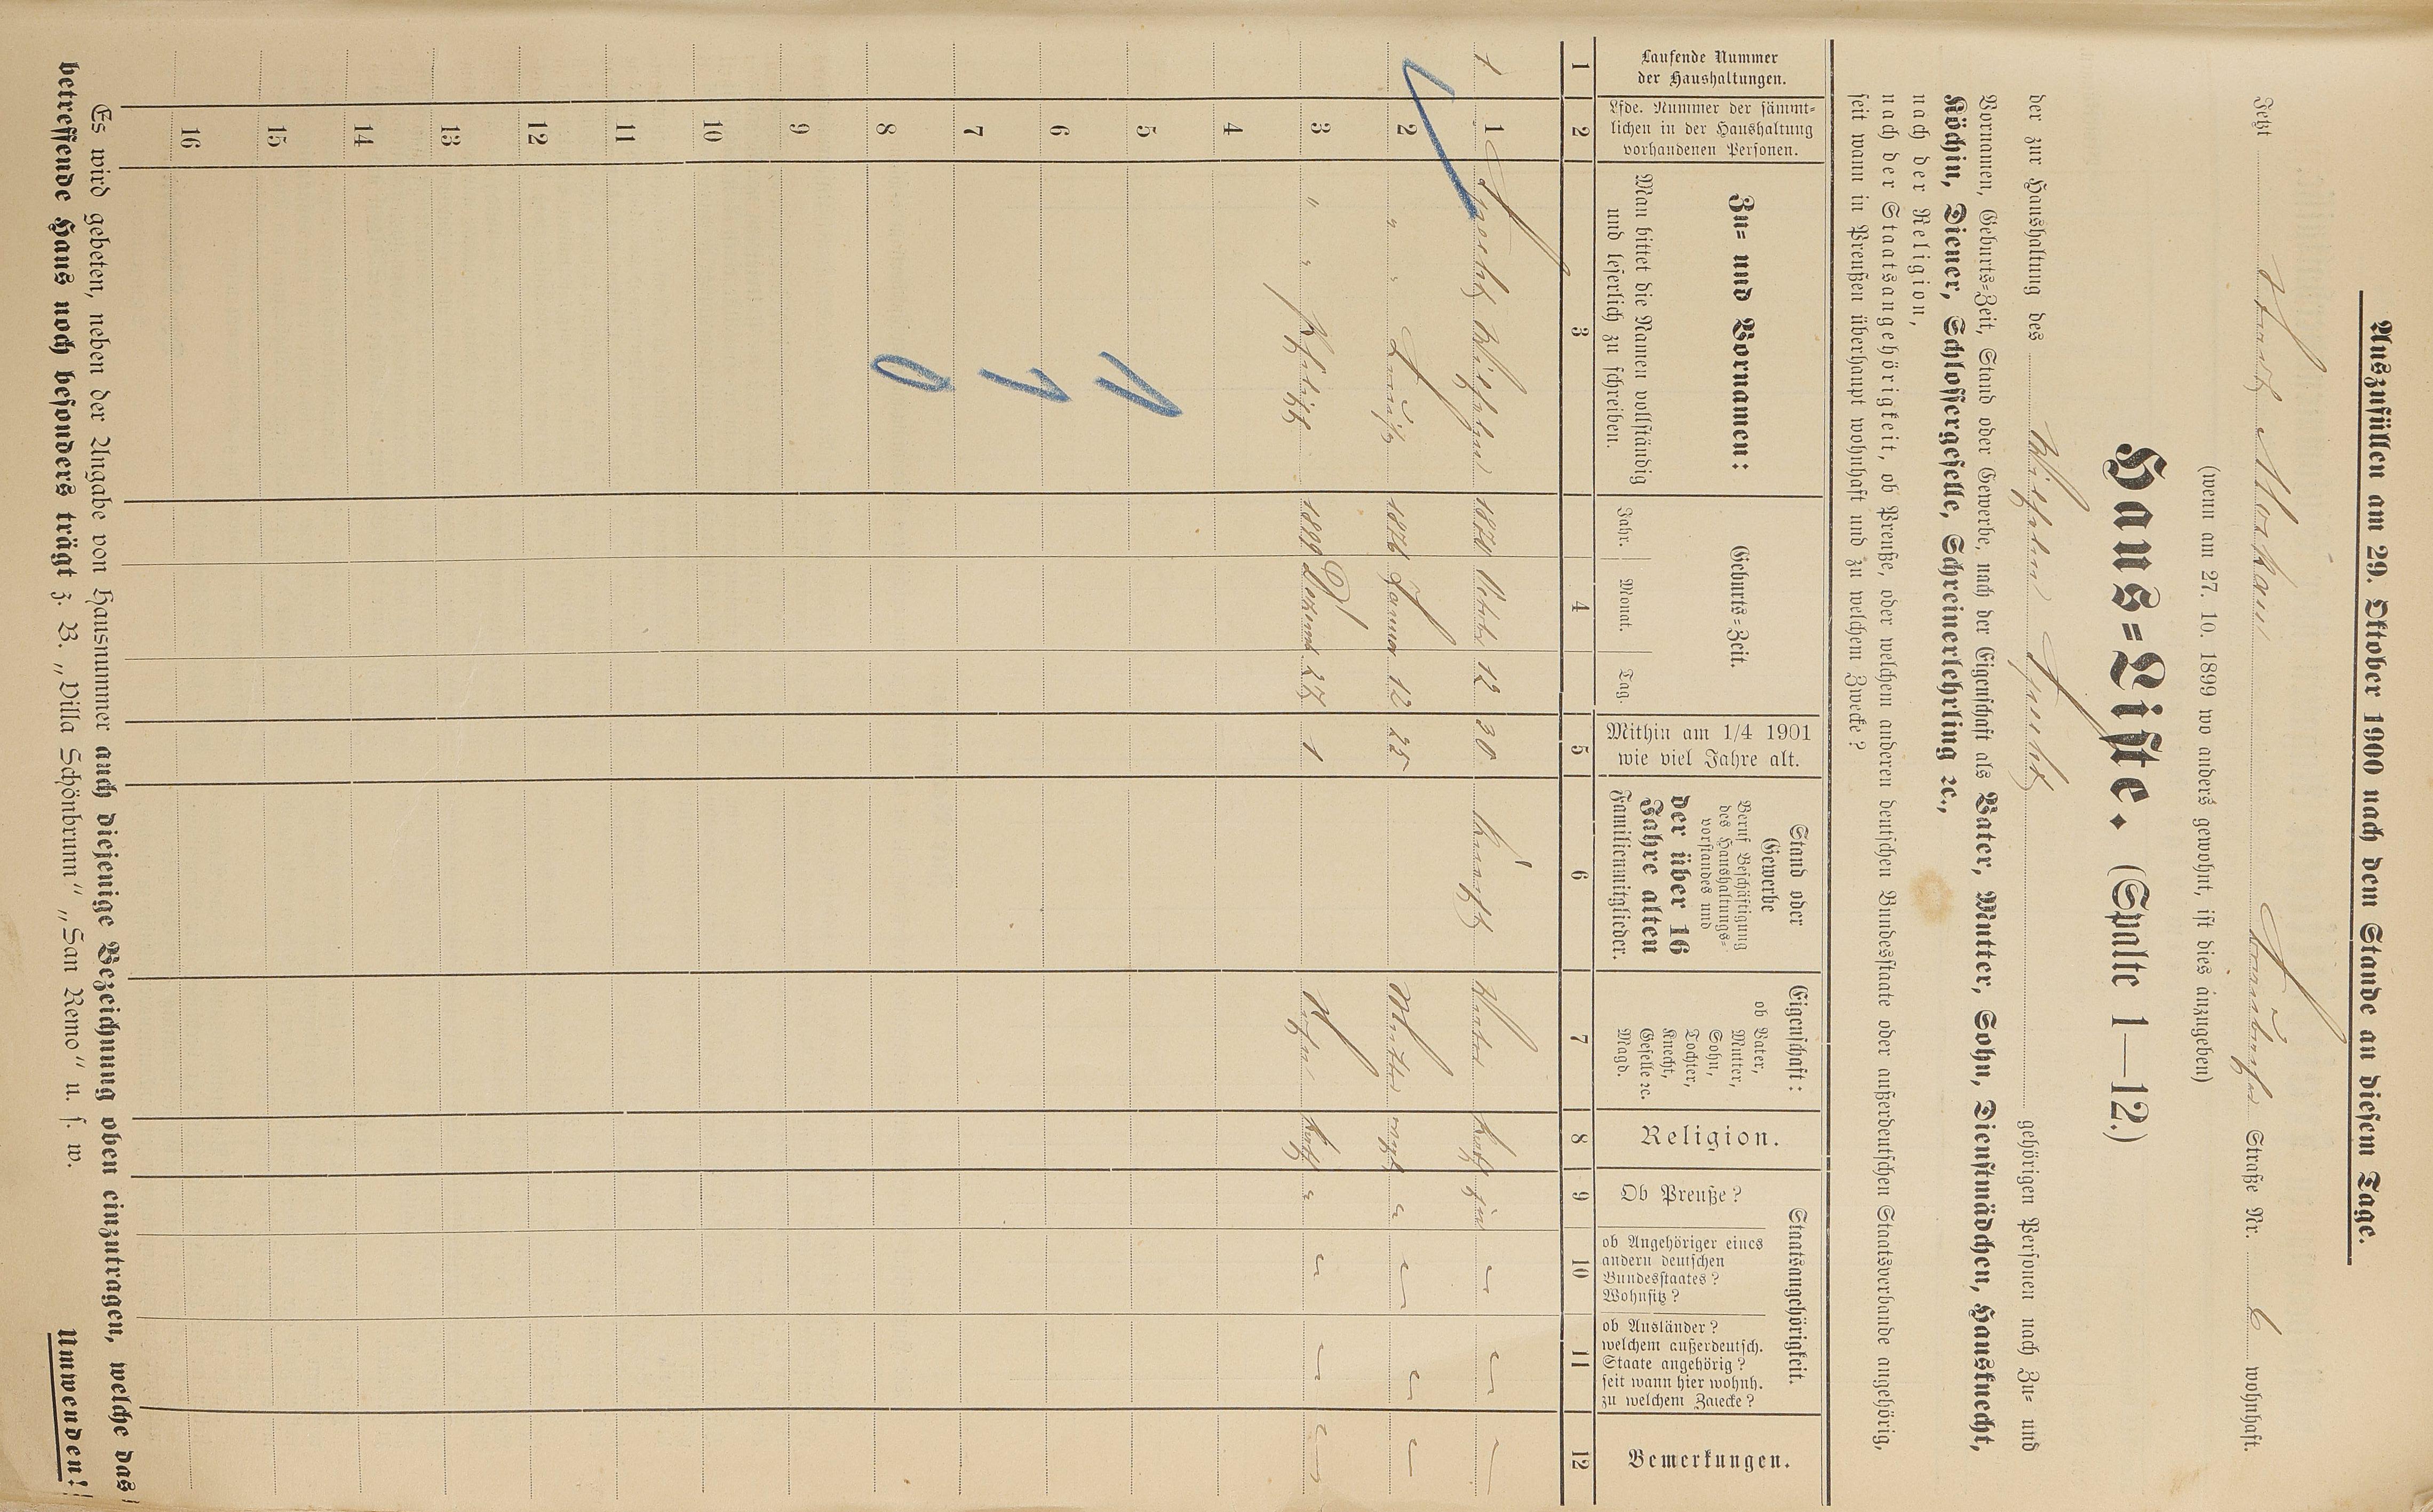 Auszufüllen am 29. Oktober 1900 nach dem Stande an diesem Tage.
Jetzt Straße Nr. 6 wohnhaft.
(wenn am 27. 10. 1899 wo anders gewohnt, ist dies anzugeben)
Haus=Liste. (Spalte 1—12.)
der zur Haushaltung des Wilhelm Specht gehörigen Personen nach Zu= und
Vornamen, Geburts=Zeit, Stand oder Gewerbe, nach der Eigenschaft als Vater, Mutter, Sohn, Dienstmädchen, Hausknecht,
Köchin, Diener, Schlossergeselle, Schreinerlehrling ec.,
nach der Religion,
nach der Staatsangehörigkeit, ob Preuße, oder welchem anderen deutschen Bundesstaate oder außerdeutschen Staatsverbande angehörig,
seit wann in Preußen überhaupt wohnhaft und zu welchem Zwecke?
Laufende Nummer
der Haushaltungen.
Lfde. Nummer der sämmt-
lichen in der Haushaltung
vorhandenen Personen.
Zu= und Vornamen:
Man bittet die Namen vollständig
und leserlich zu schreiben.
Geburts=Zeit.
Jahr. Monat. Tag.
Mithin am 1/4 1901
wie viel Jahre alt.
Stand oder
Gewerbe
Beruf Beschäftigung
des Haushaltungs=
vorstandes und
der über 16
Jahre alten
Familienmitglieder.
Eigenschaft:
ob Vater,
Mutter,
Sohn,
Tochter,
Knecht,
Geselle ec.
Magd.
Religion.
Staatsangehörigkeit.
Ob Preuße?
ob Angehöriger eines
andern deutschen
Bundesstaates?
Wohnsitz?
ob Ausländer?
welchem außerdeutsch.
Staate angehörig?
seit wann hier wohnh.
zu welchem Zwecke?
Bemerkungen.
1 2 3 4 5 6 7 8 9 10 11 12
1 1 Specht Wilhelm 1870 October 12 30 Vater kath ja
2 " " Louise 1876 Januar 12 25 Mutter evgl "
3 " " 1899 Dezemb 27 1 Sohn kath "
4
5 11
6
7 1
8 0
9
10
11
12
13
14
15
16
Es wird gebeten, neben der Angabe von Hausnummer auch diejenige Bezeichnung oben einzutragen, welche das
betreffende Haus noch besonders trägt z. B. „Villa Schönbrunn" „San Remo" u. s. w.
Umwenden!